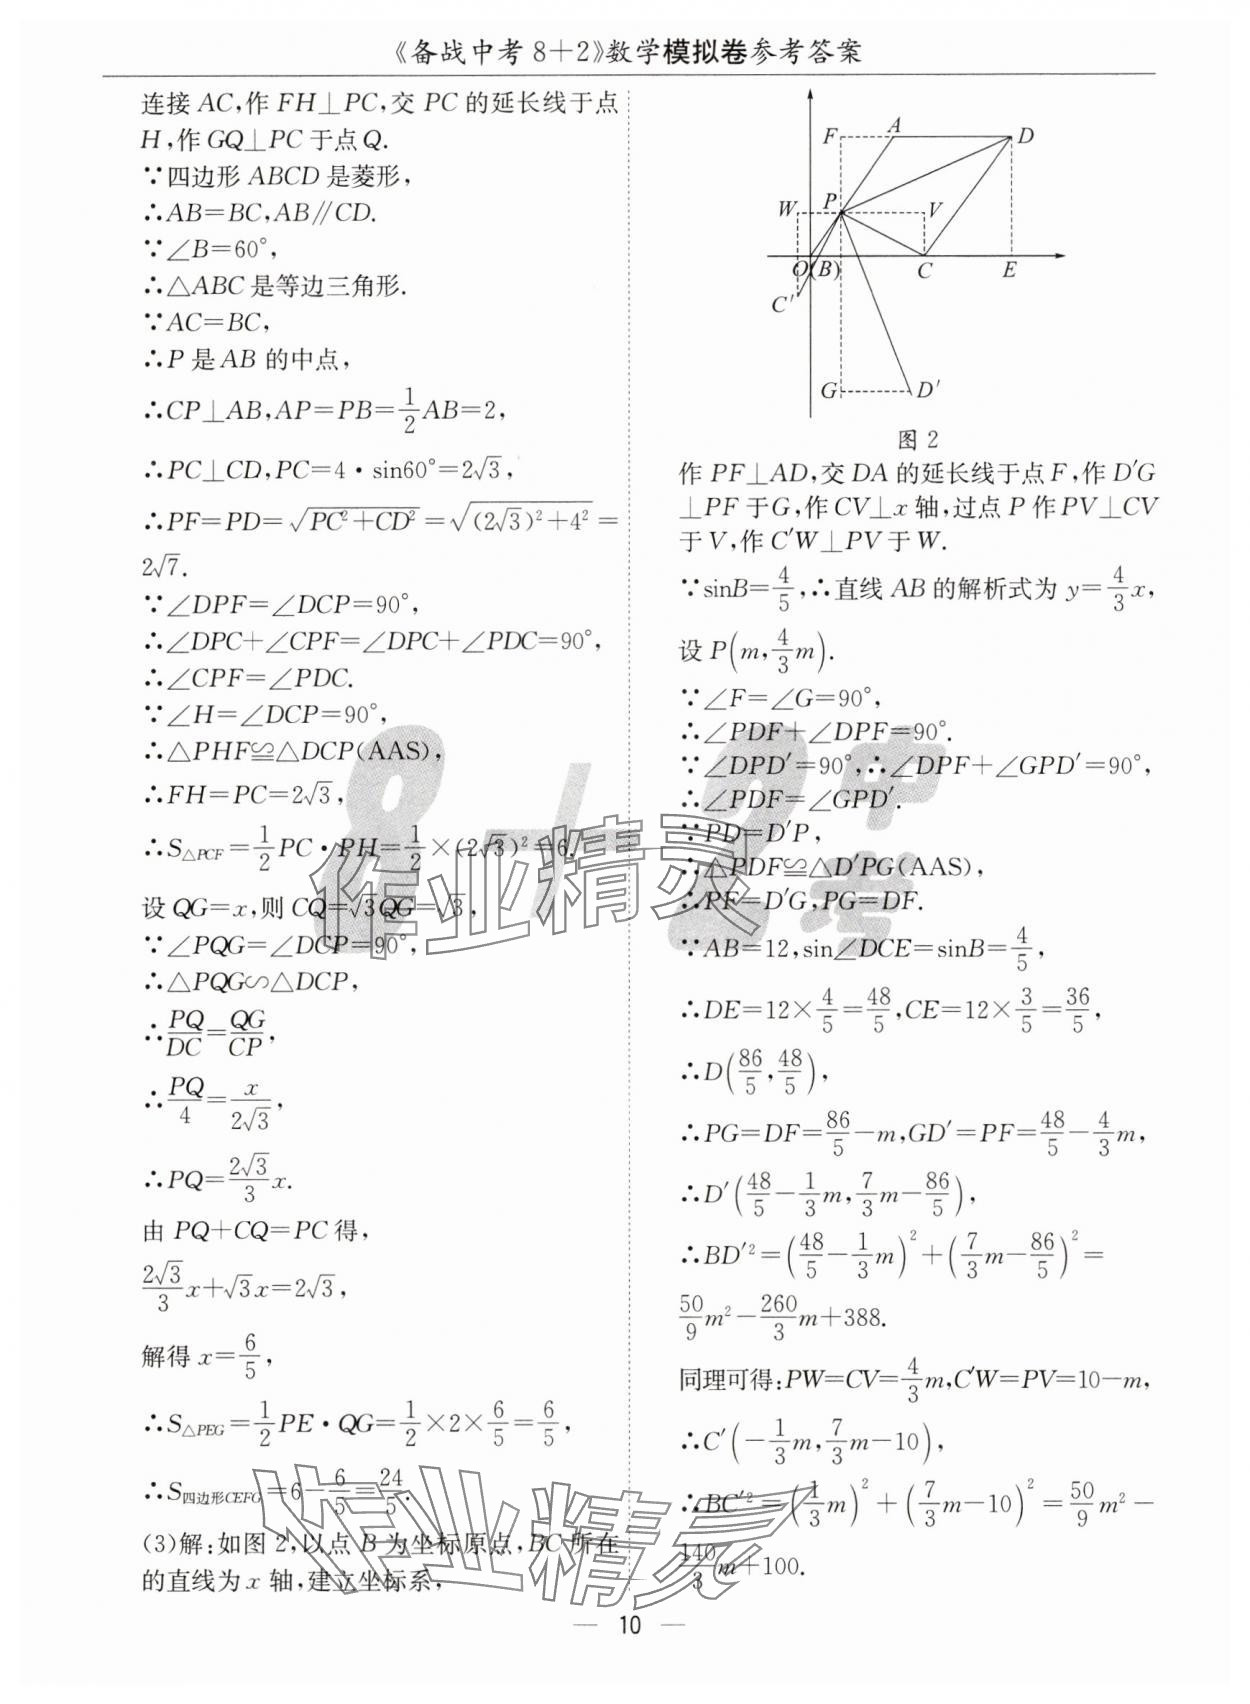 《备战中考8+2》数学模拟卷参考答案
连接AC,作FH⊥PC,交PC的延长线于点
H,作GQ⊥PC于点Q.
∵四边形ABCD是菱形,
∴AB=BC,AB∥CD.
∵∠B=60°,
∴△ABC是等边三角形.
∵AC=BC,
∴P是AB的中点,
∴CP⊥AB,AP=PB=1/2AB=2,
∴PC⊥CD,PC=4·sin60°=2√3,
∴PF=PD=√(PC²+CD²)=√((2√3)²+4²)=
2√7.
∵∠DPF=∠DCP=90°,
∴∠DPC+∠CPF=∠DPC+∠PDC=90°,
∴∠CPF=∠PDC.
∵∠H=∠DCP=90°,
∴△PHF≌△DCP(AAS),
∴FH=PC=2√3,
∴S△PCF=1/2PC·PH=1/2×(2√3)²=6.
设QG=x,则CQ=√3QG=√3,
∵∠PQG=∠DCP=90°,
∴△PQG∽△DCP,
∴PQ/DC=QG/CP,
∴PQ/4=x/(2√3),
∴PQ=(2√3)/3x.
由PQ+CQ=PC得,
(2√3)/3x+√3x=2√3,
解得x=6/5,
∴S△PEG=1/2PE·QG=1/2×2×6/5=6/5,
∴S四边形CEFG=6-6/5=24/5.
(3)解:如图2,以点B为坐标原点,BC所在
的直线为x轴,建立坐标系,
F A D
W P V
O(B) C E
C′
G D′
图2
作PF⊥AD,交DA的延长线于点F,作D′G
⊥PF于G,作CV⊥x轴,过点P作PV⊥CV
于V,作C′W⊥PV于W.
∵sinB=4/5,∴直线AB的解析式为y=4/3x,
设P(m,4/3m).
∵∠F=∠G=90°,
∴∠PDF+∠DPF=90°.
∵∠DPD′=90°,∴∠DPF+∠GPD′=90°,
∴∠PDF=∠GPD′.
∵PD=D′P,
∴△PDF≌△D′PG(AAS),
∴PF=D′G,PG=DF.
∵AB=12,sin∠DCE=sinB=4/5,
∴DE=12×4/5=48/5,CE=12×3/5=36/5,
∴D(86/5,48/5),
∴PG=DF=86/5-m,GD′=PF=48/5-4/3m,
∴D′(48/5-1/3m,7/3m-86/5),
∴BD′²=(48/5-1/3m)²+(7/3m-86/5)²=
50/9m²-260/3m+388.
同理可得:PW=CV=4/3m,C′W=PV=10-m,
∴C′(-1/3m,7/3m-10),
∴BC′²=(1/3m)²+(7/3m-10)²=50/9m²-
140/3m+100.
8+2中考
作业精灵
作业精灵
— 10 —